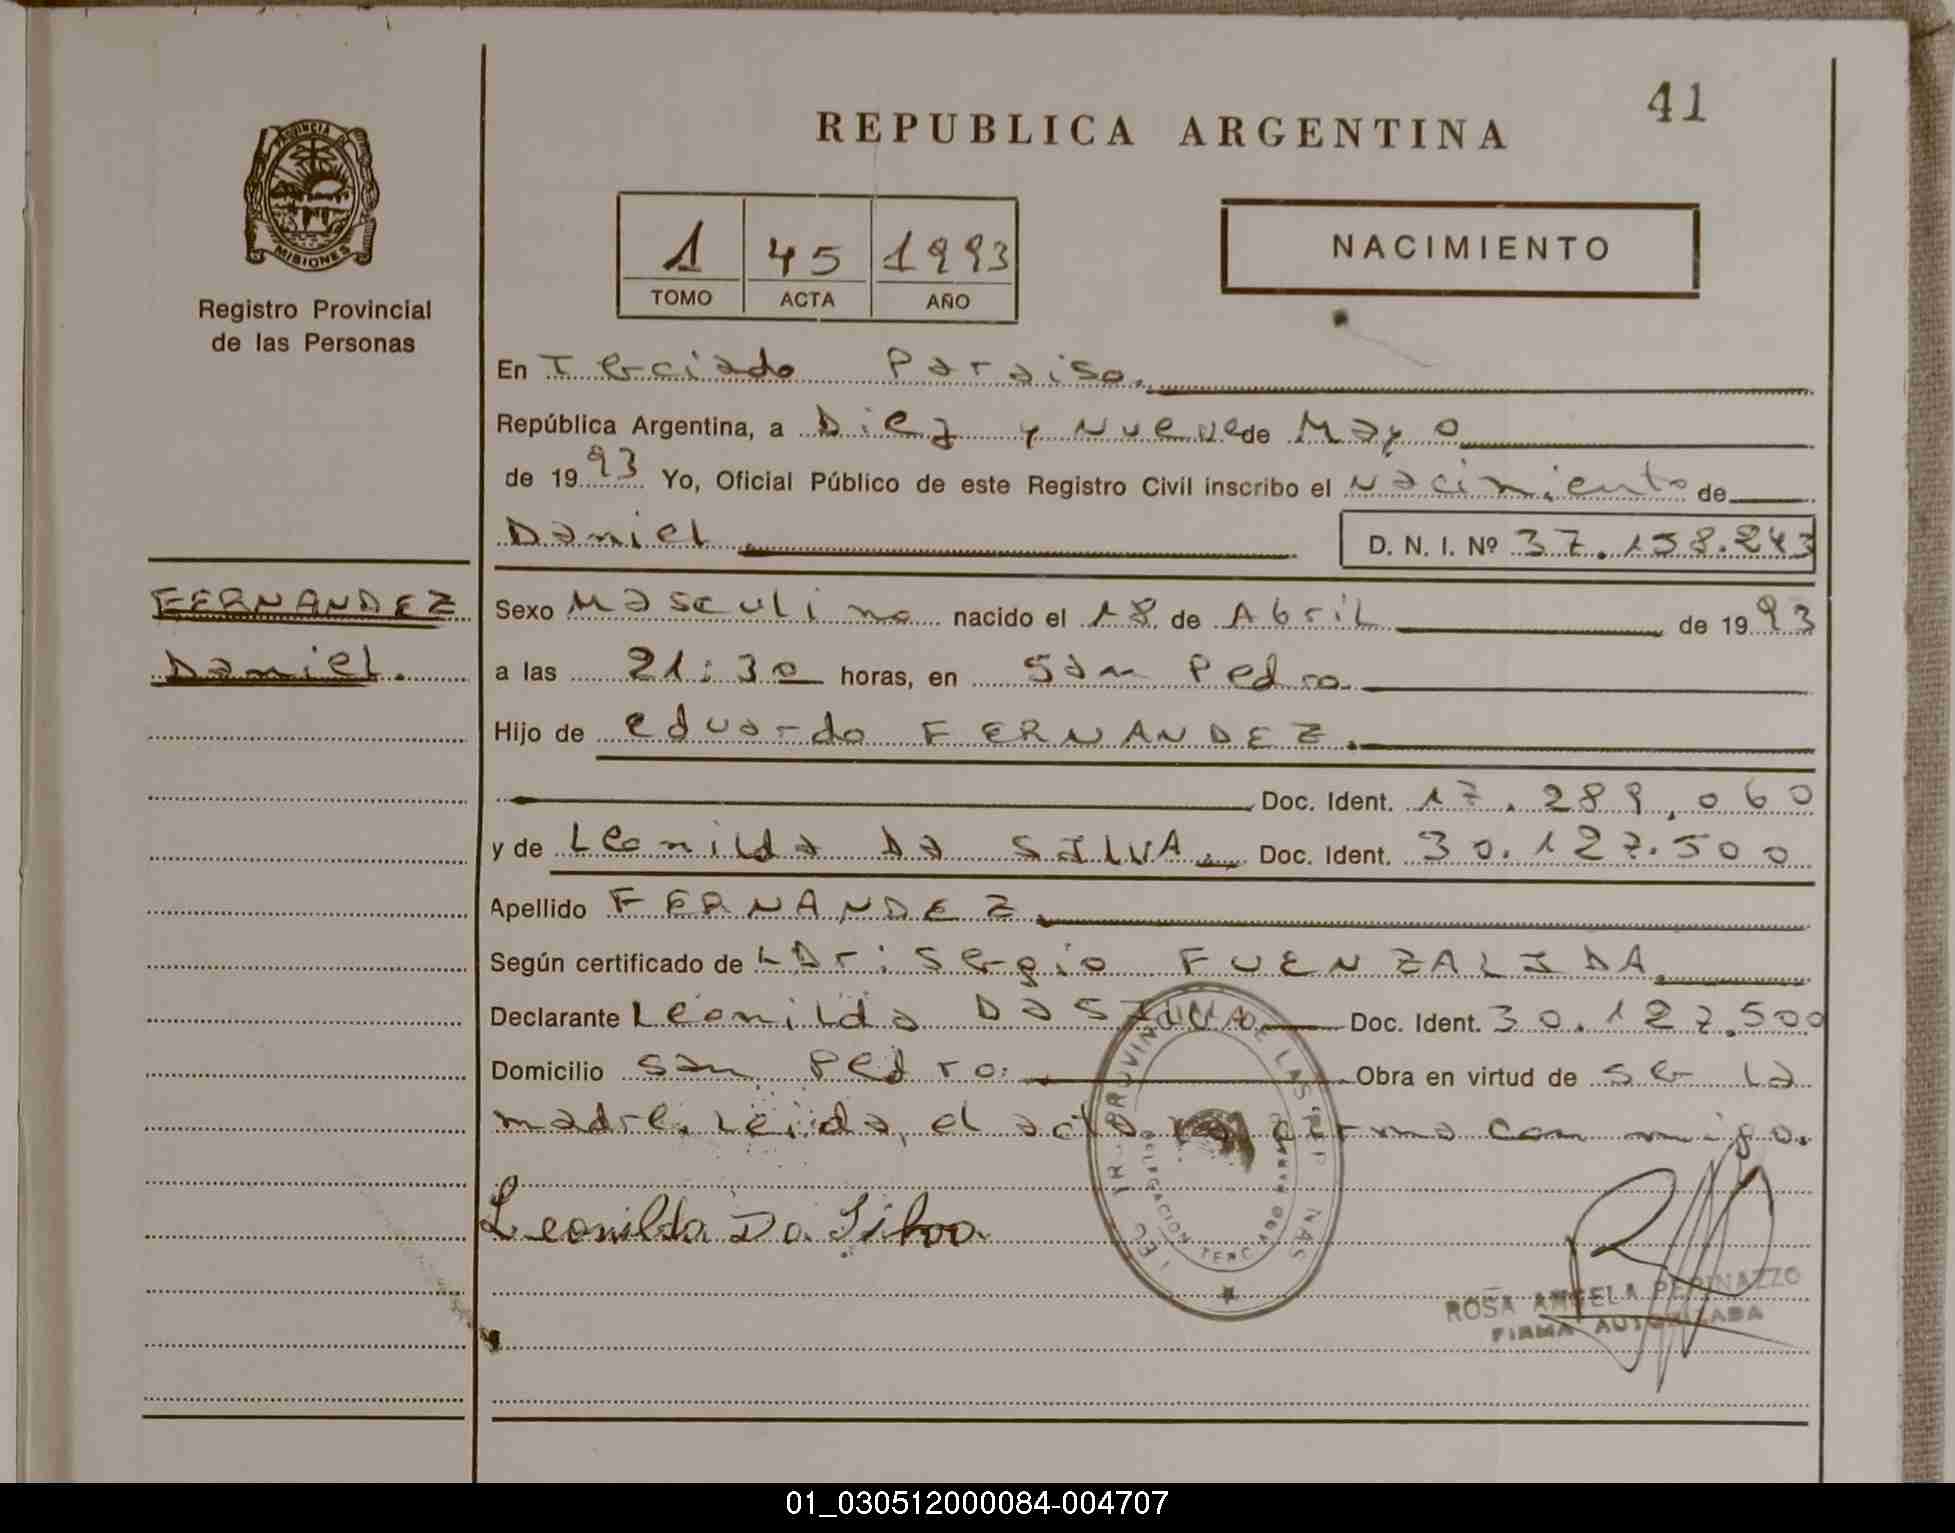 41
REPUBLICA ARGENTINA
PROVINCIA DE
MISIONES
Registro Provincial
de las Personas
1 45 1993
TOMO ACTA AÑO
NACIMIENTO
En Terciado Paraiso.
República Argentina, a Diez y Nueve de Mayo
de 1993 Yo, Oficial Público de este Registro Civil inscribo el Nacimiento de
Daniel D. N. I. Nº 37.158.243
FERNANDEZ
Daniel.
Sexo Masculino nacido el 18 de Abril de 1993
a las 21:30 horas, en San Pedro
Hijo de Eduardo FERNANDEZ.
Doc. Ident. 17.289.060
y de Leonilda Da SILVA. Doc. Ident. 30.127.500
Apellido FERNANDEZ
Según certificado de Sergio FUENZALIDA.
Declarante Leonilda Da SILVA. Doc. Ident. 30.127.500
Domicilio San Pedro. Obra en virtud de ser la
madre. Leida, el acta firma con migo.
Leonilda Da Silva
ROSA ANGELA PERINAZZO
FIRMA AUTORIZADA
01_030512000084-004707